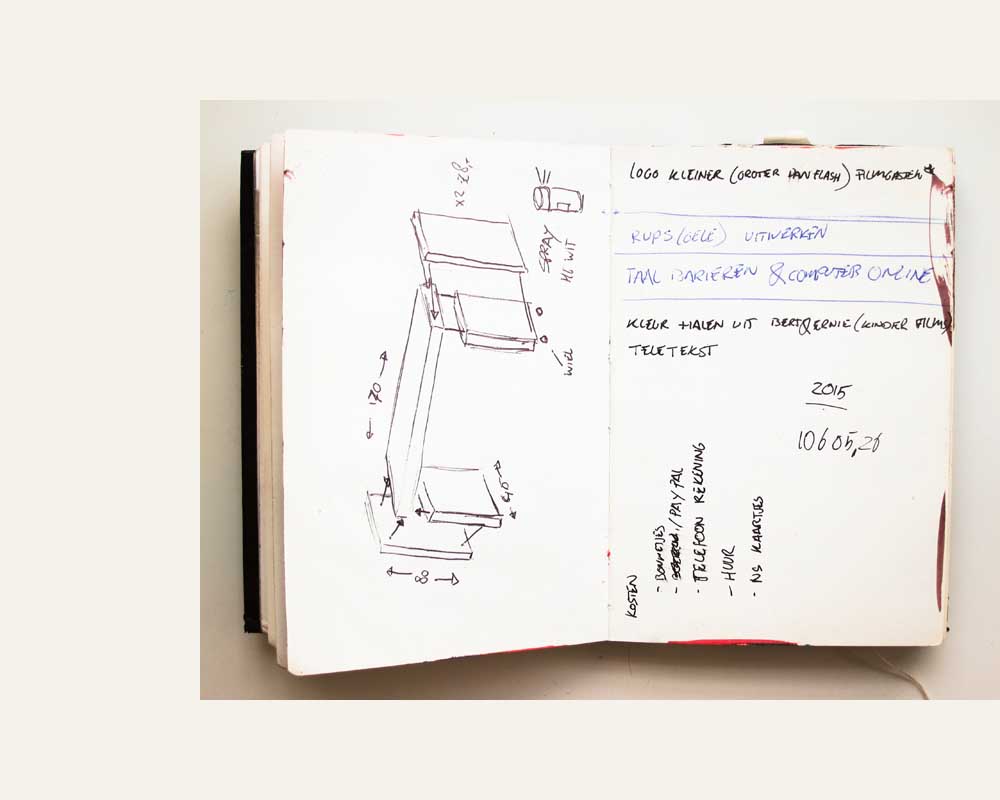 x2 28,-
SPRAY
H6 WIT
WIEL
170
80
LOGO KLEINER (GROTER HAN FLASH) FILMGASTEN
RUPS (GELE) UITWERKEN
TAAL BARIEREN & COMPUTER ONLINE
KLEUR HALEN UIT BERT&ERNIE (KINDER FILMS
TELETEKST
2015
10605,26
KOSTEN
- BONNETJES
- /PAYPAL
- TELEFOON REKENING
- HUUR
- NS KAARTJES